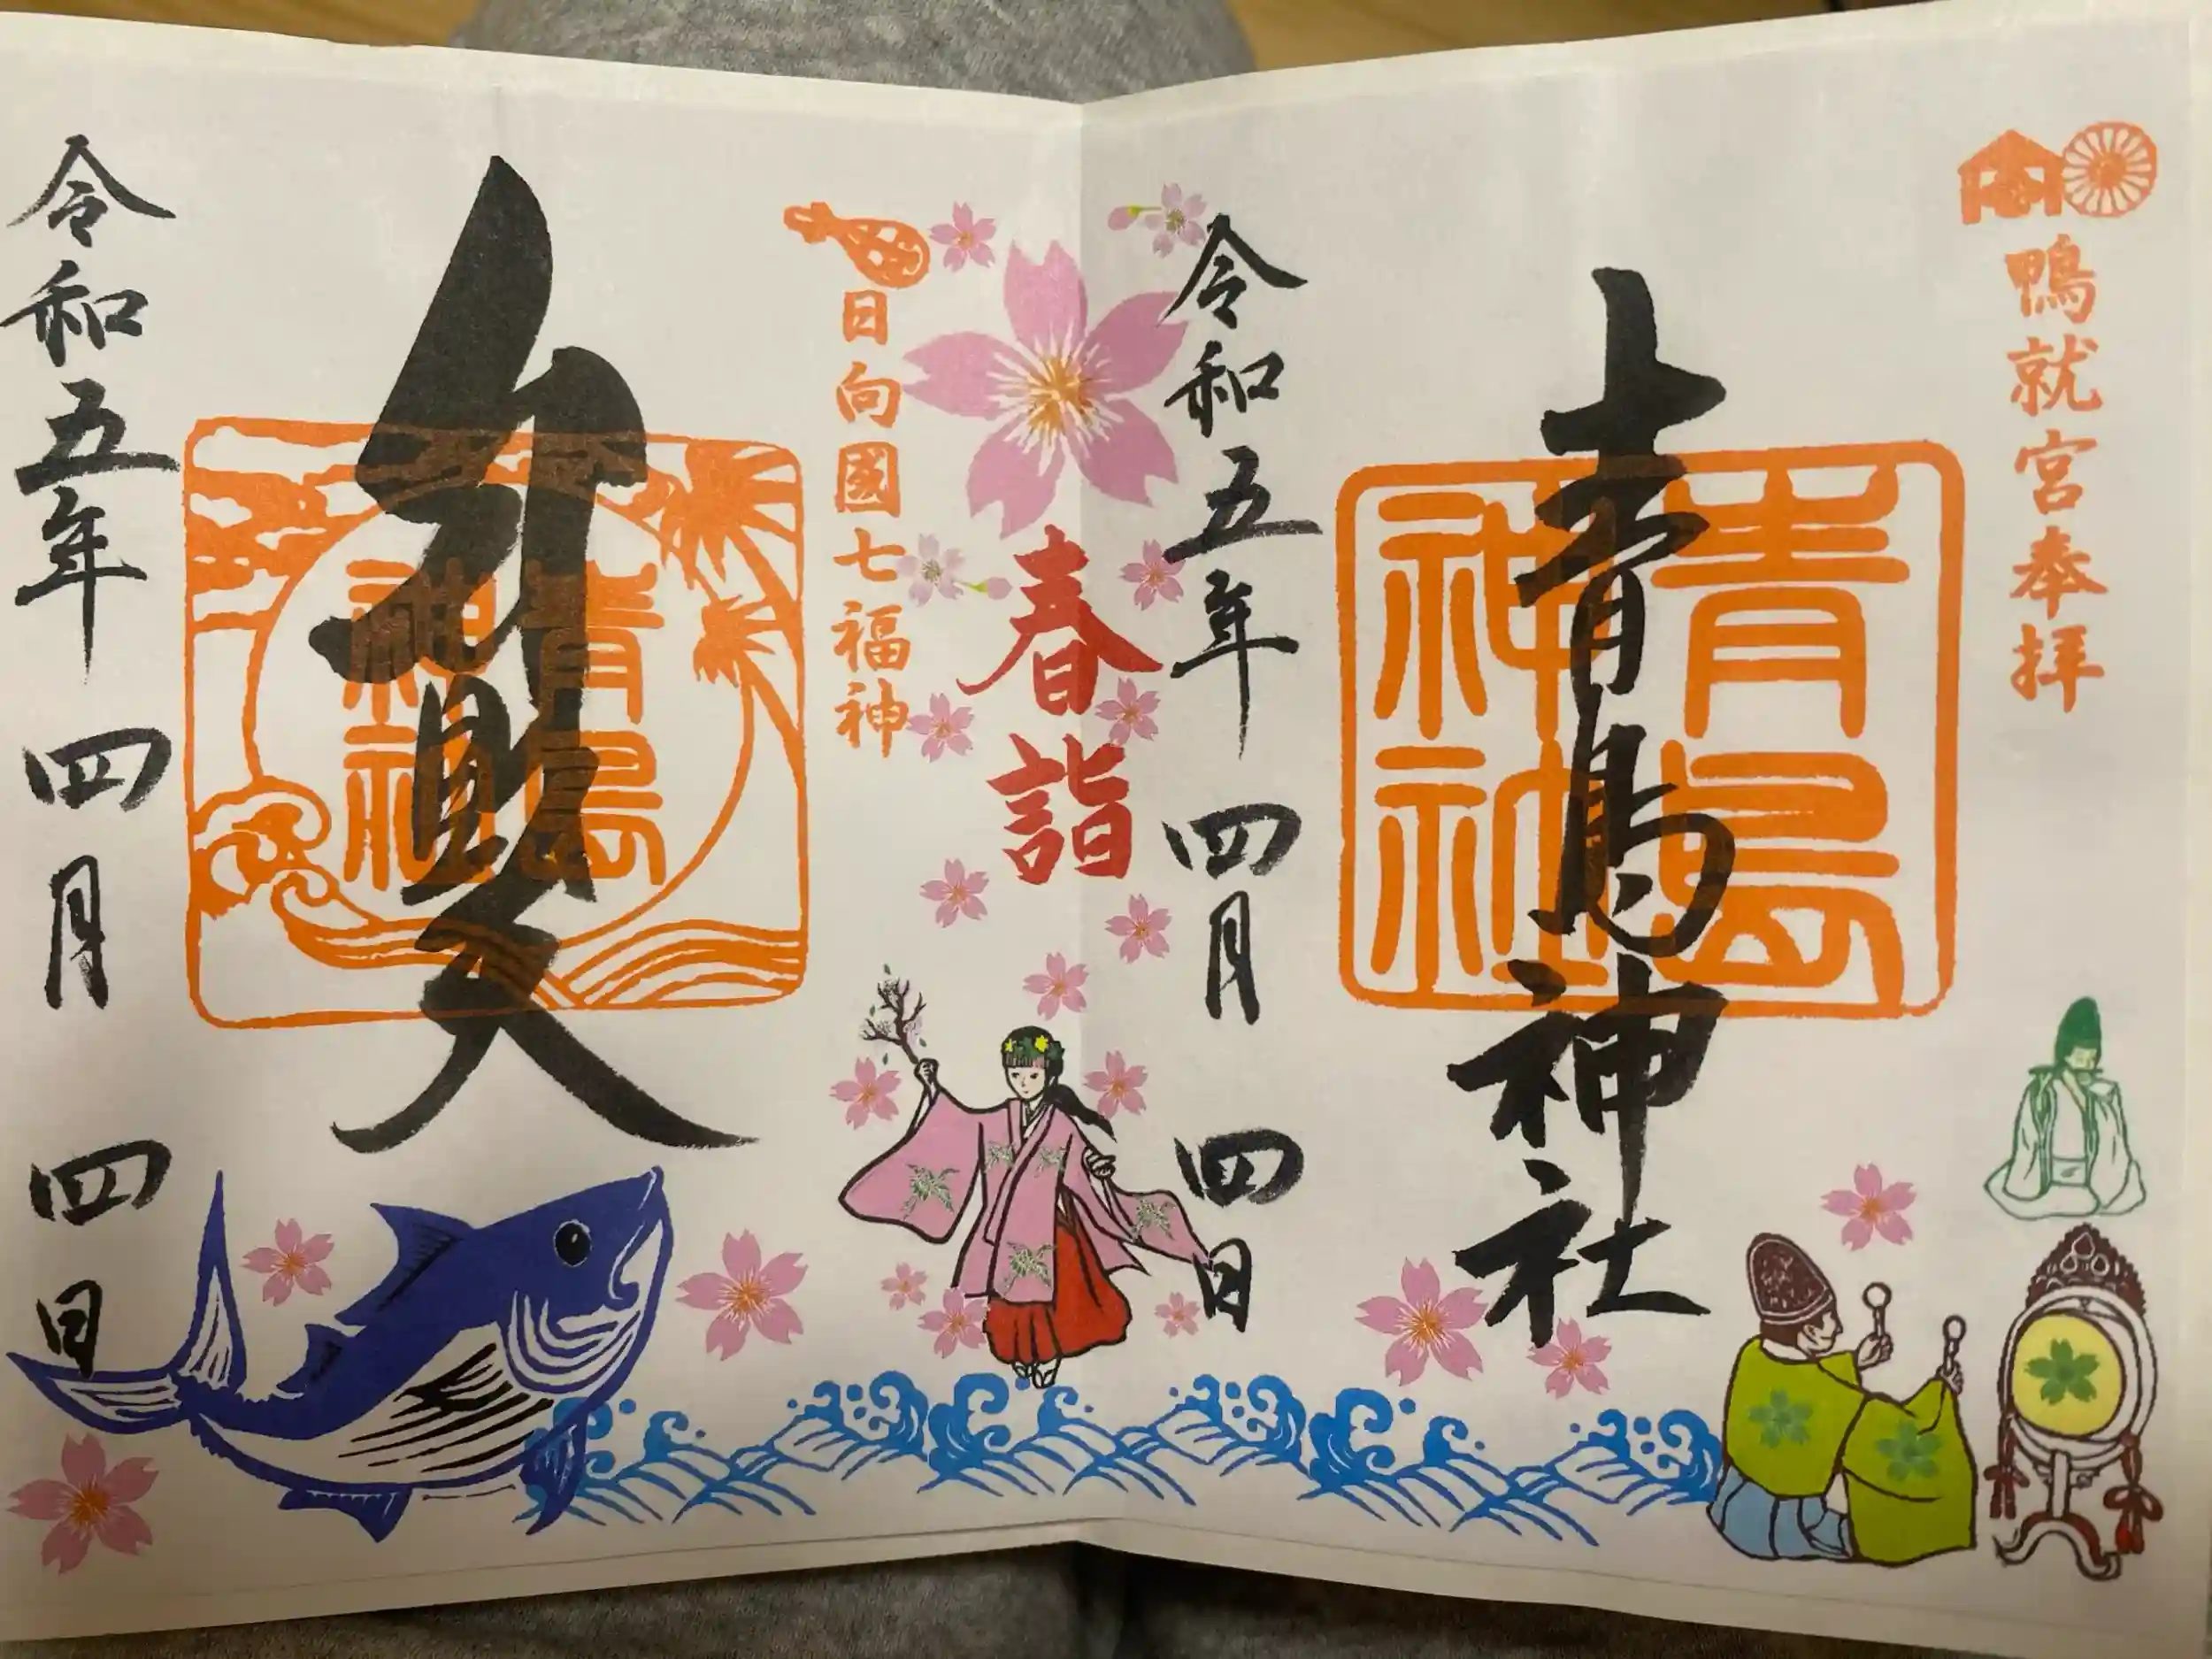 鴨就宮奉拝
青島神社
青島
神社
令和五年 四月 四日
春詣
日向國七福神
弁財天
青島
神社
令和五年 四月 四日